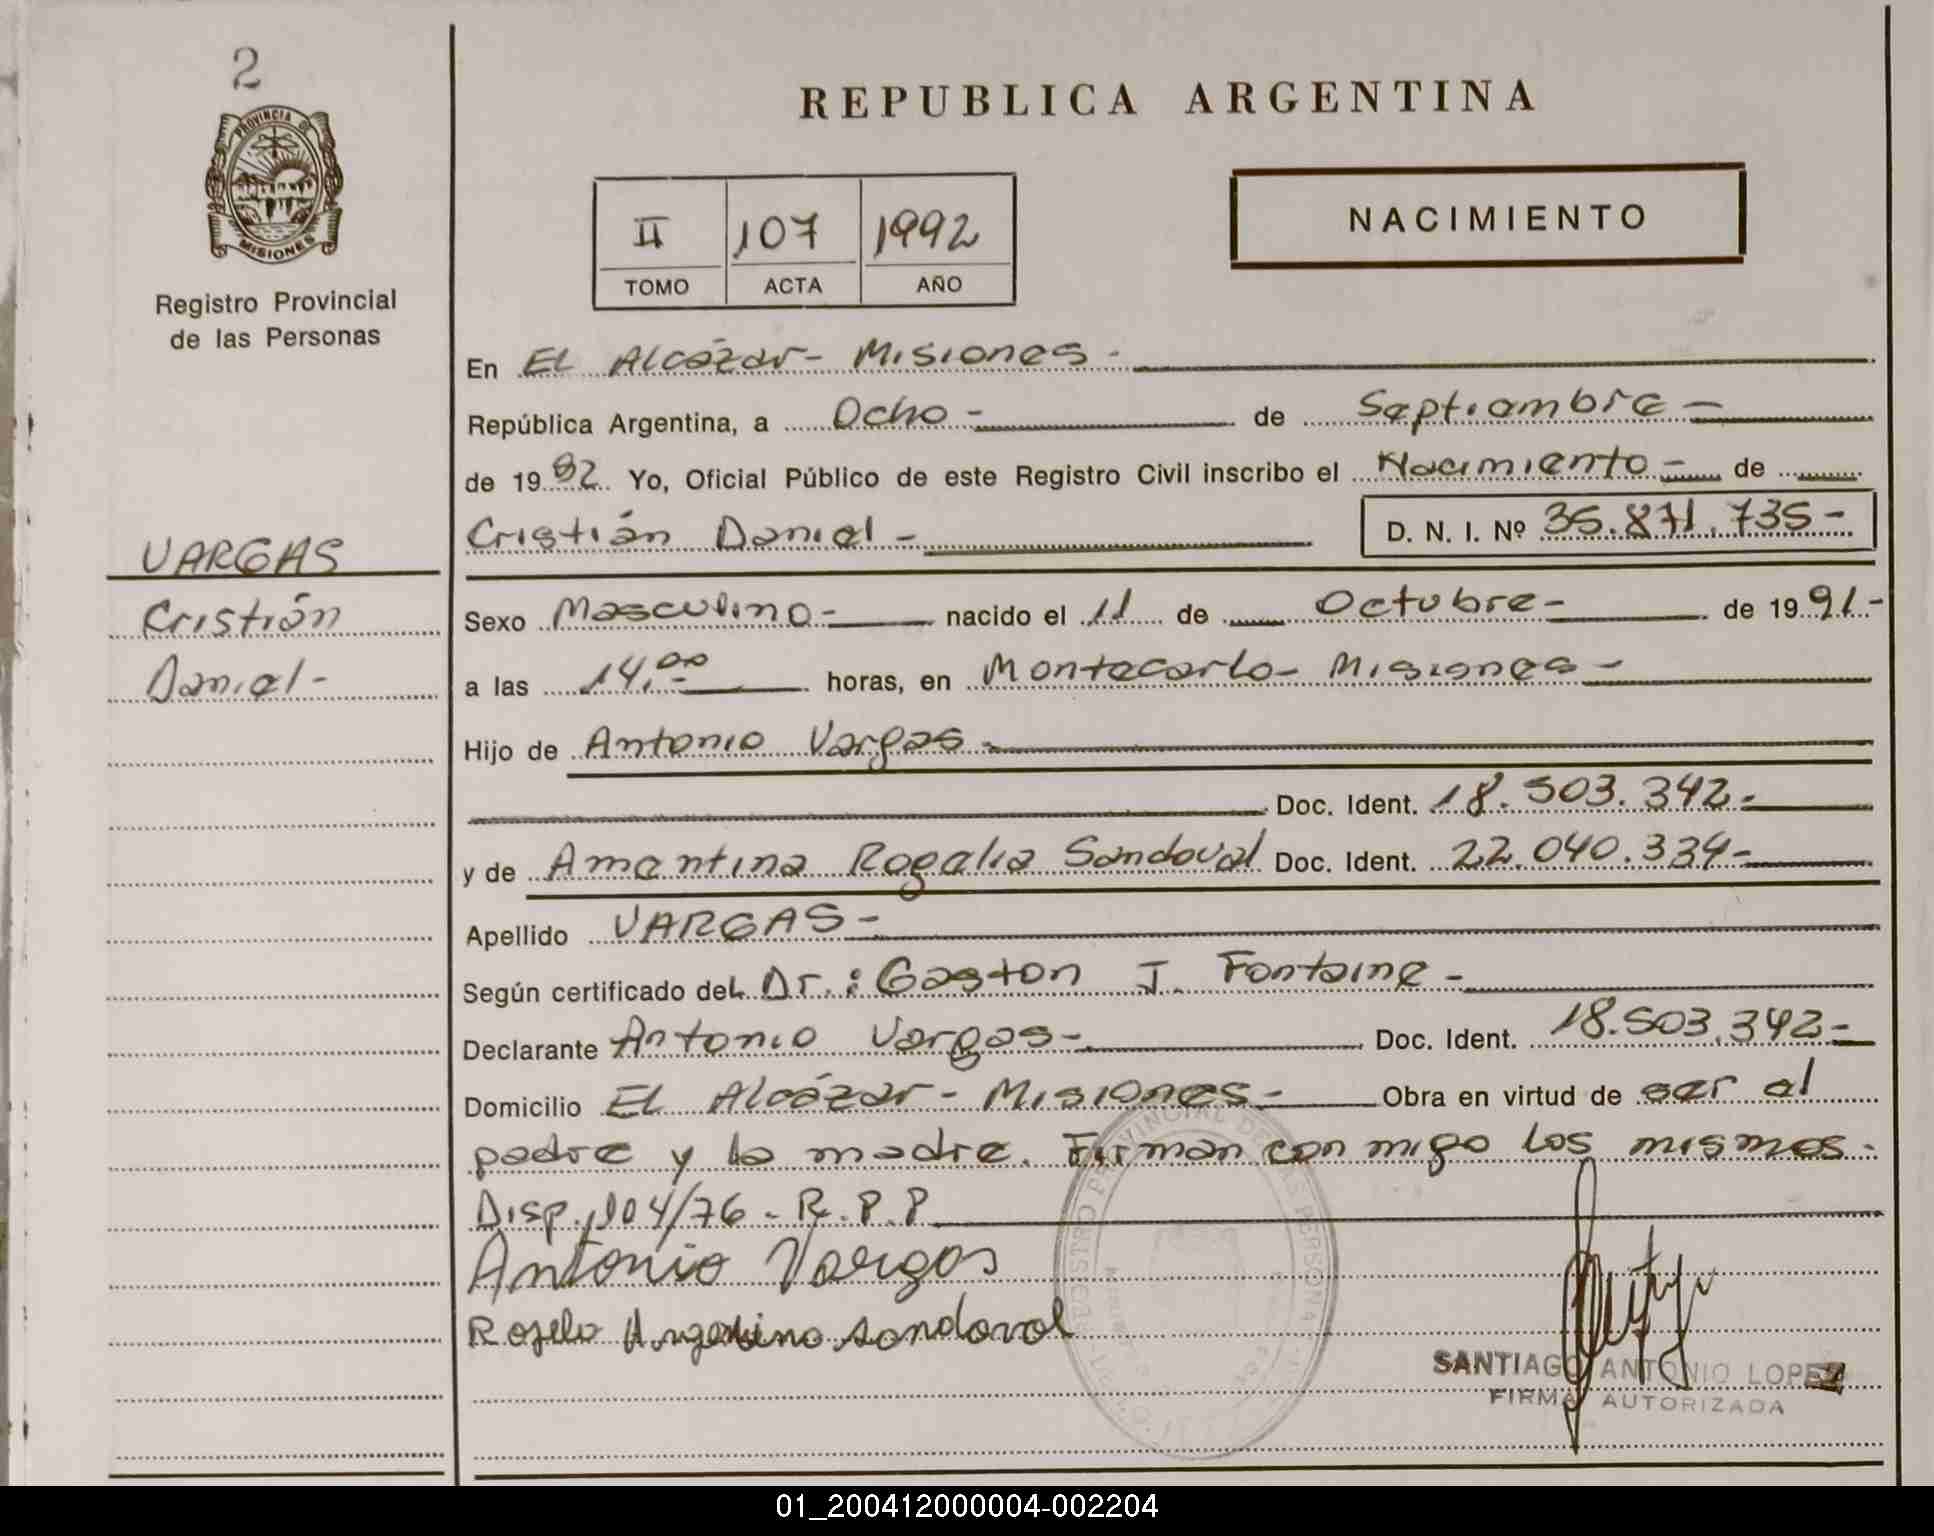 2
REPUBLICA ARGENTINA
PROVINCIA DE
MISIONES
Registro Provincial
de las Personas
II 107 1992
TOMO ACTA AÑO
NACIMIENTO
En EL Alcázar - Misiones -
República Argentina, a Ocho - de Septiembre -
de 1992 Yo, Oficial Público de este Registro Civil inscribo el Nacimiento - de
Cristián Daniel - D. N. I. Nº 35.871.735 -
VARGAS
Cristián
Daniel -
Sexo Masculino - nacido el 11 de Octubre - de 1991 -
a las 14,00 - horas, en Montecarlo - Misiones -
Hijo de Antonio Vargas -
Doc. Ident. 18.503.342 -
y de Amentina Rogelia Sandoval Doc. Ident. 22.040.334 -
Apellido VARGAS -
Según certificado del Dr.: Gaston J. Fontaine -
Declarante Antonio Vargas - Doc. Ident. 18.503.342 -
Domicilio EL Alcázar - Misiones - Obra en virtud de ser el
padre y la madre. Firman con migo los mismos -
Disp. 104/76 - R.P.P
Antonio Vargas
sandoval
REGISTRO PROVINCIAL DE LAS PERSONAS
SANTIAGO ANTONIO LOPEZ
FIRMA AUTORIZADA
01_200412000004-002204